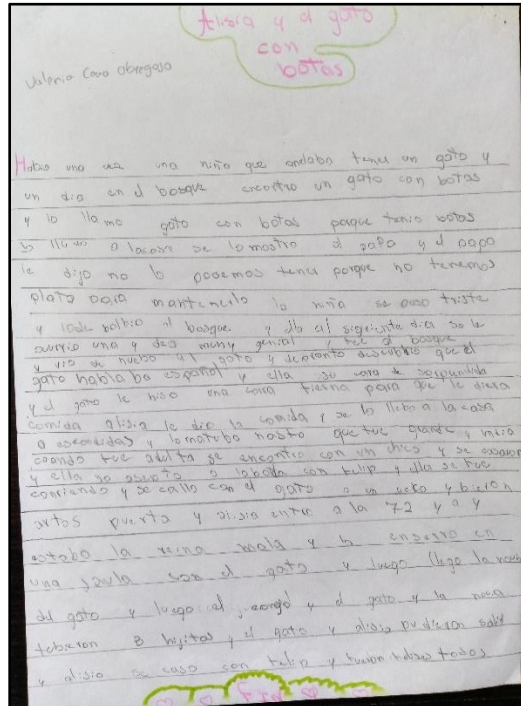 Alisia y el gato
con
botas
Valeria Cano Obregoso
Habia una vez una niña que anelaba tener un gato y
un dia en el bosque encontro un gato con botas
y lo llamo gato con botas porque tenia botas
lo llevo a lacasa se lo mostro al papa y el papa
le dijo no lo podemos tener porque no tenemos
plata para mantenerlo la niña se puso triste
y lode bolbio al bosque y ella al siguiente dia se le
ocurrio una y dea muny genial y fue al bosque
y vio de nuebo al gato y depronto descubrio que el
gato hablaba español y ella so cara de sorpendida
y el gato le hiso una cara tierna para que le diera
comida alisia le dio la comida y se lo llebo a la casa
a escondidas y lo matubo hasta que fue grande y
cuando fue adulta se encontro con un chico y se
y ella so a la boda con felip y ella se fue
corriendo y se callo con el gato a un ueko y bieron
artas puerta y alisia entro a la 72 y a y
estaba la reina mala y la enserro en
una jaula con el gato y luego llego la novia
del gato y luego al y el gato y la novia
tubieron 3 hijitos y el gato y alisia pudieron salir
y alisia se caso con felip y fueron felises todos
FIN